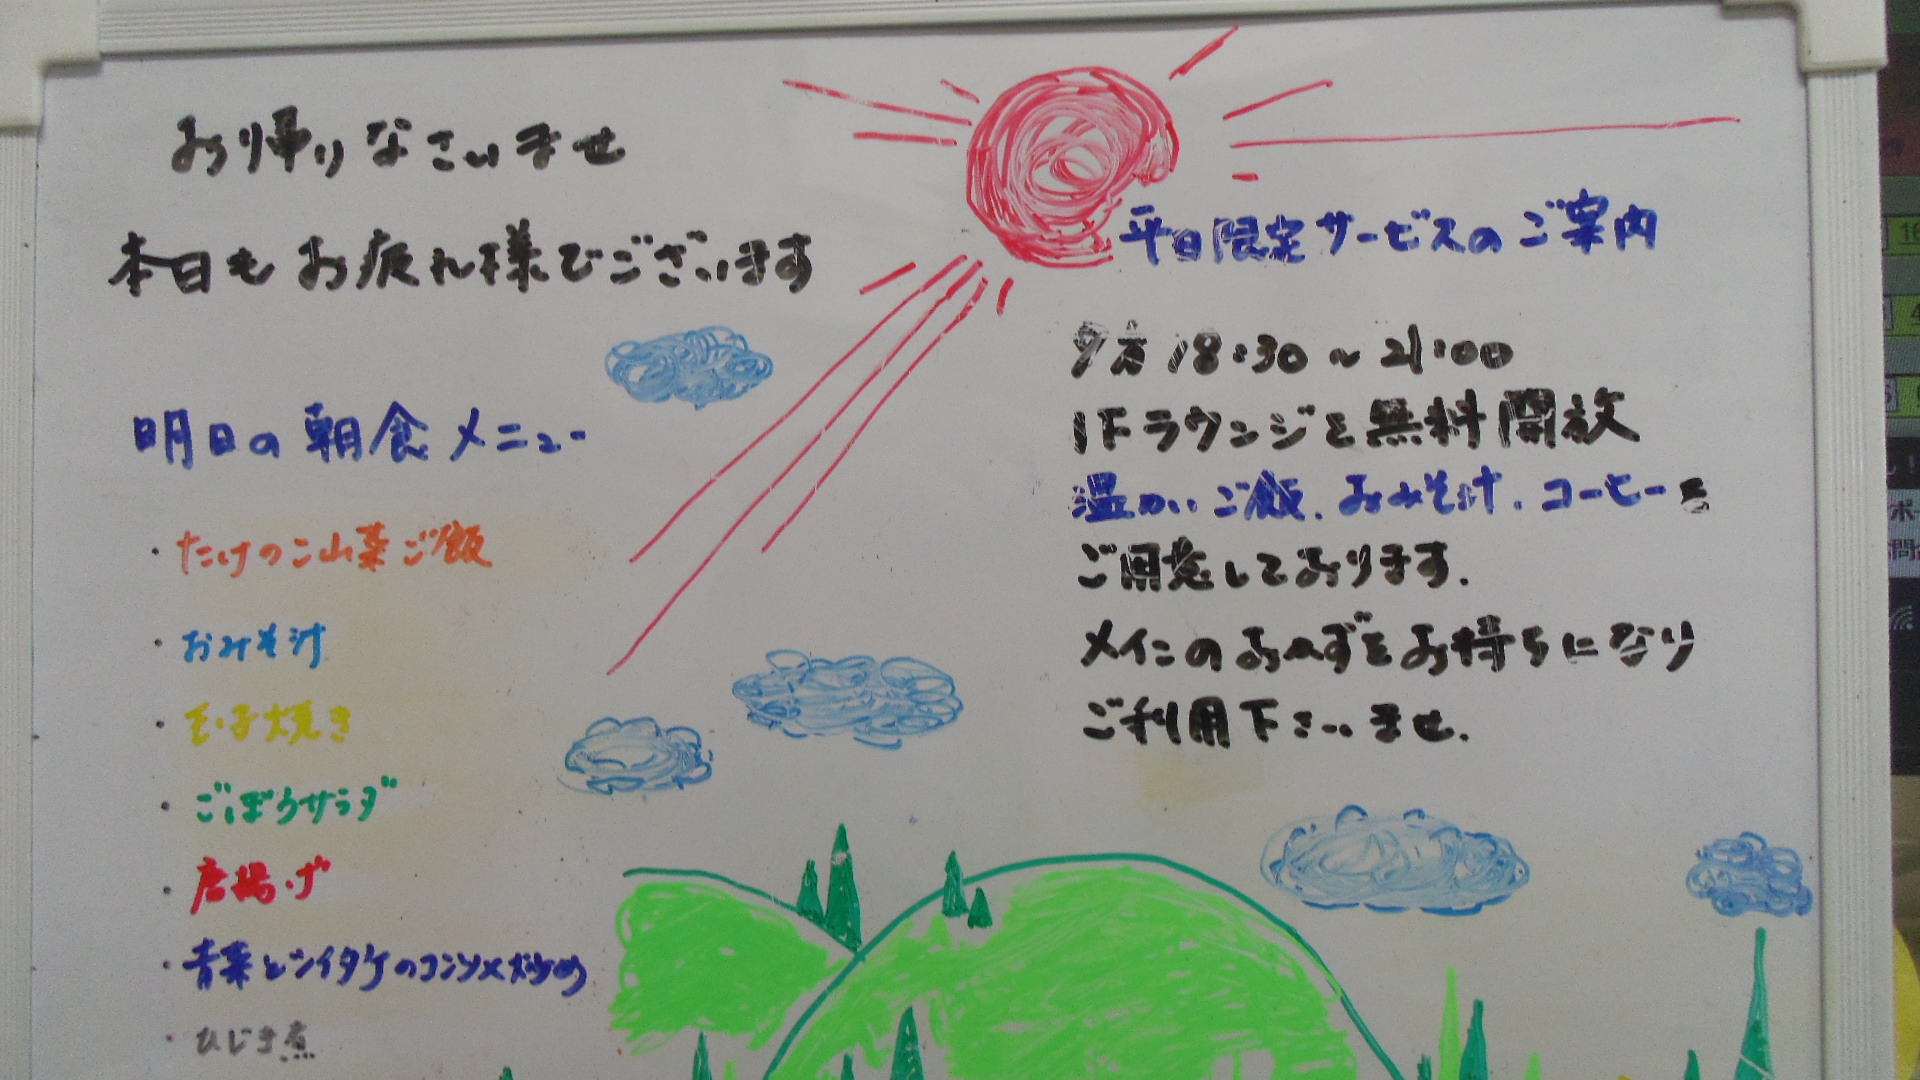 お帰りなさいませ
本日もお疲れ様でございます
明日の朝食メニュー
・たけのこ山菜ご飯
・おみそ汁
・玉子焼き
・ごぼうサラダ
・唐揚げ
・青菜とシイタケのコンソメ炒め
・ひじき煮
平日限定サービスのご案内
夕方18:30～21:00
1Fラウンジを無料開放
温かいご飯.おみそ汁.コーヒーを
ご用意しております.
メインのおかずをお持ちになり
ご利用下さいませ.